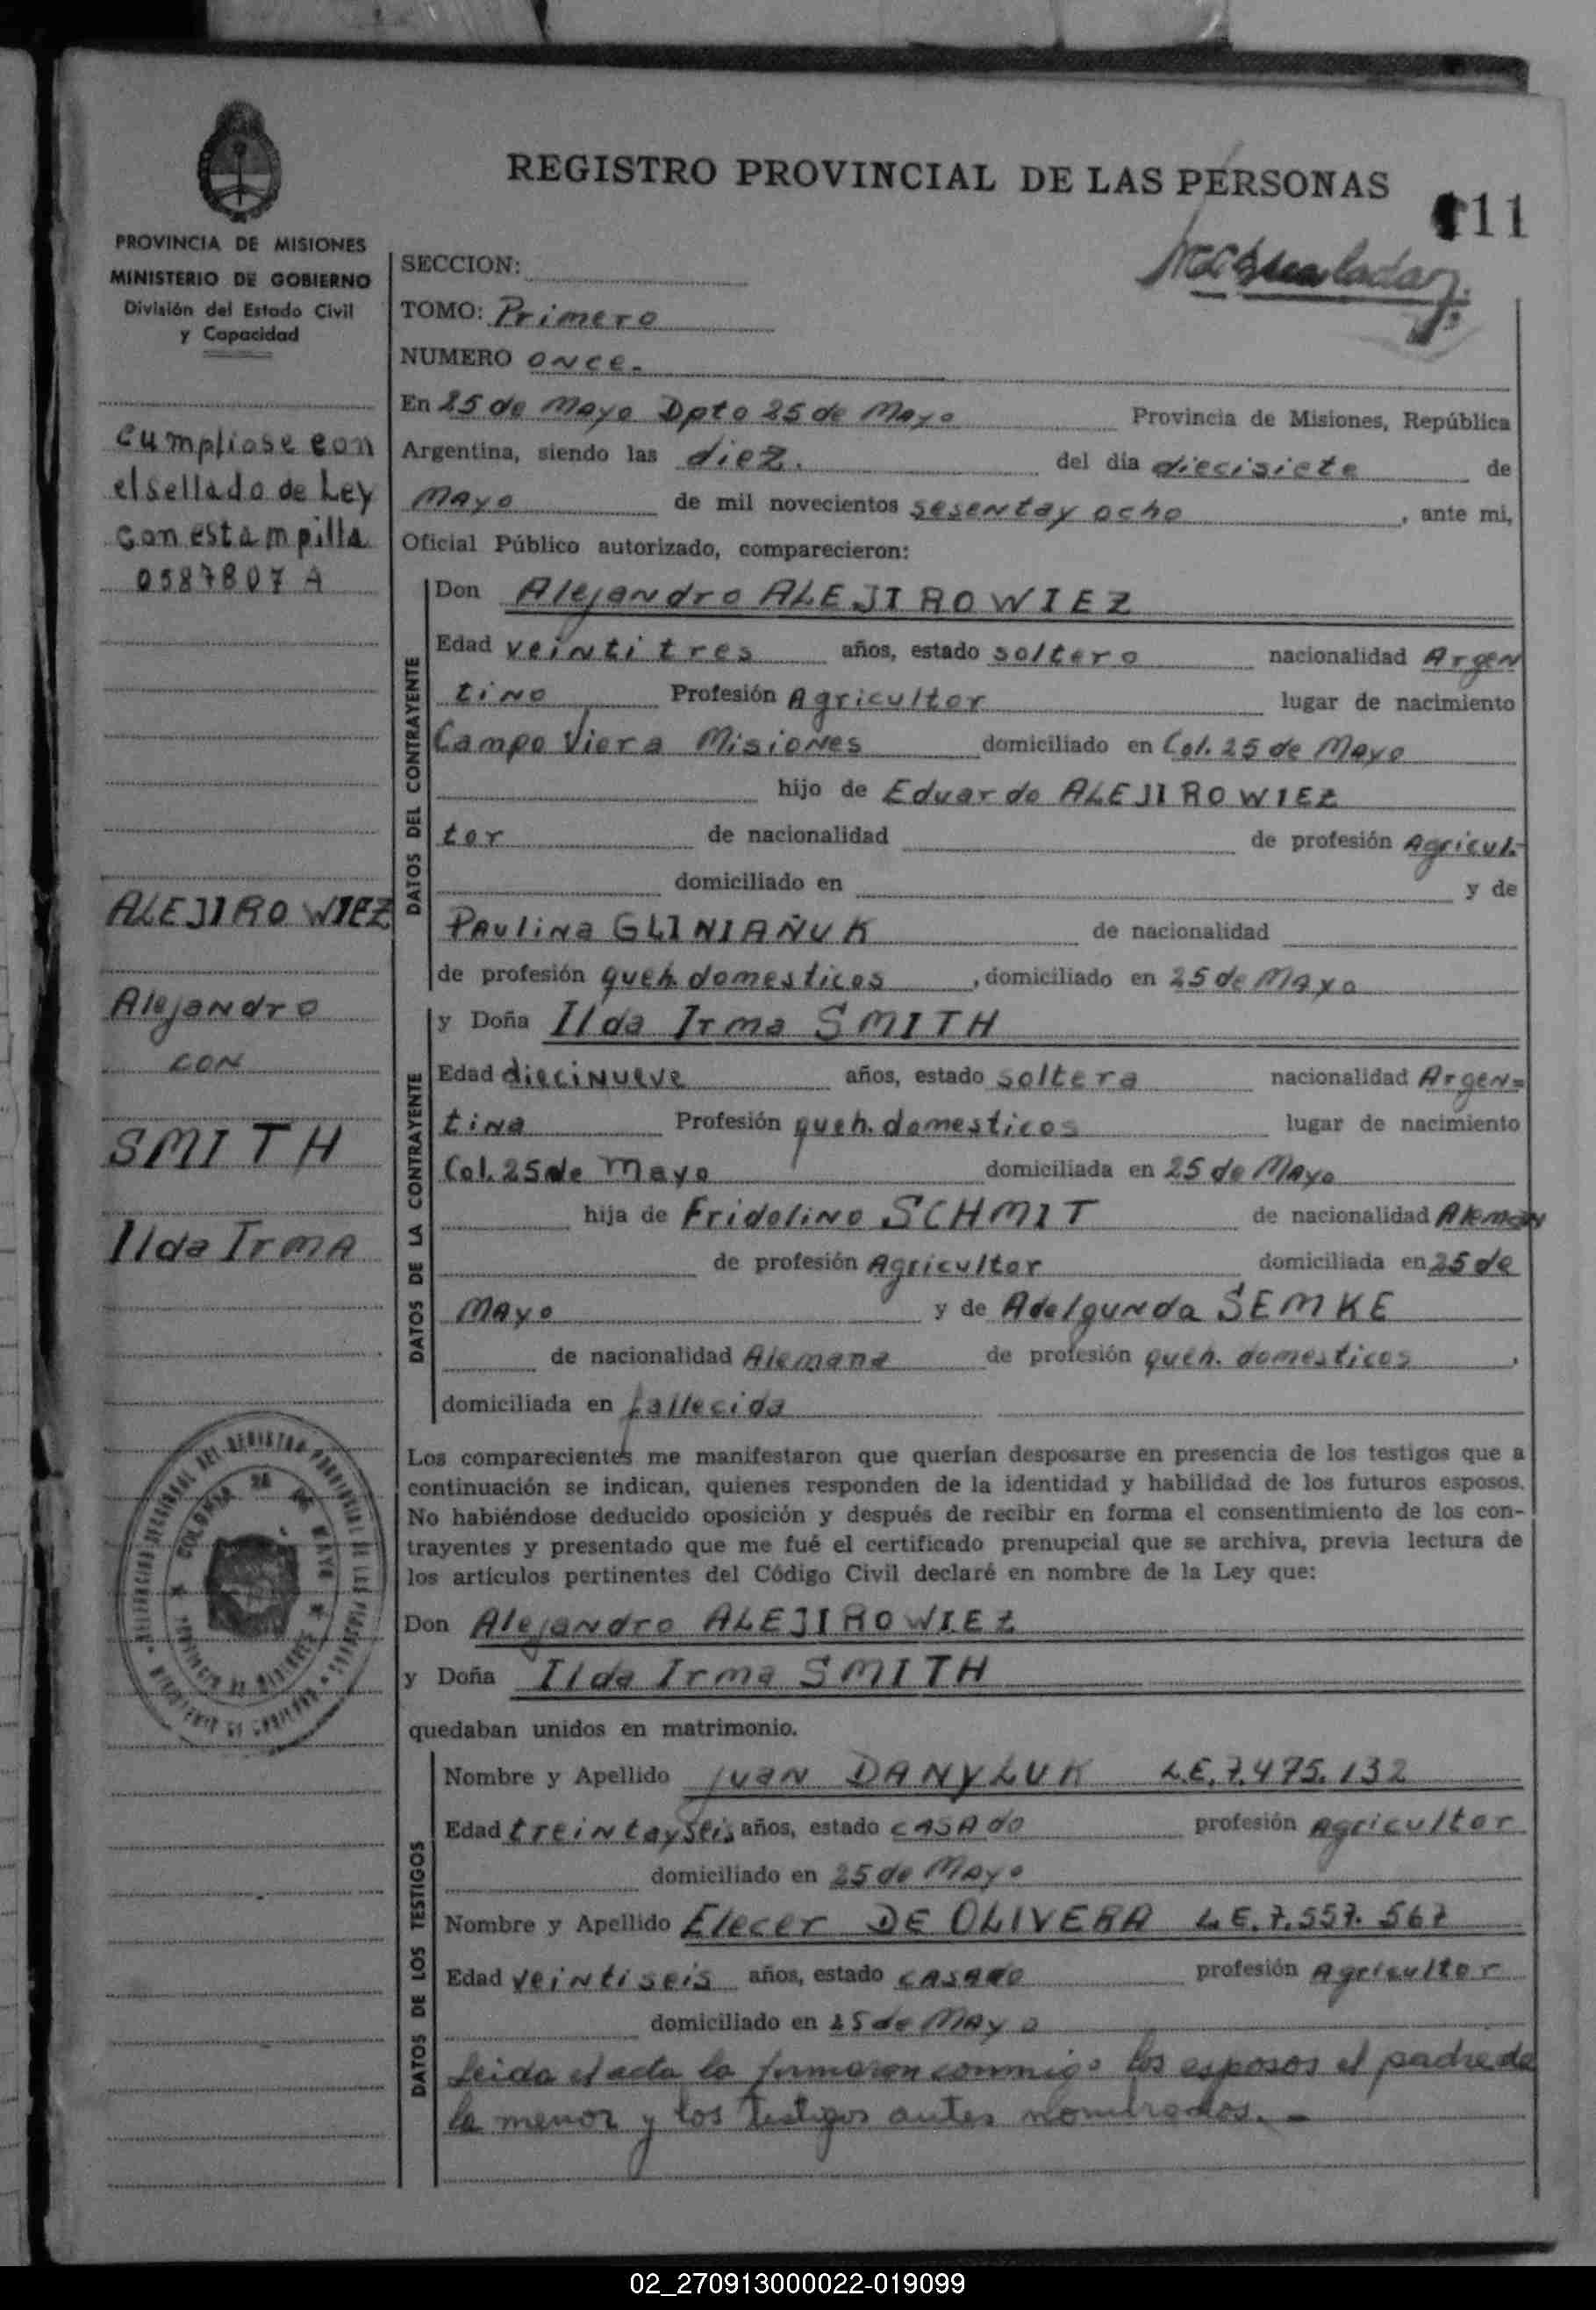 REGISTRO PROVINCIAL DE LAS PERSONAS
111
PROVINCIA DE MISIONES
MINISTERIO DE GOBIERNO
División del Estado Civil
y Capacidad
SECCION:
TOMO: Primero
NUMERO once.
En 25 de Mayo Dpto 25 de Mayo Provincia de Misiones, República
Argentina, siendo las diez. del día diecisiete de
Mayo de mil novecientos sesenta y ocho, ante mi,
Oficial Público autorizado, comparecieron:
Cumpliose con
el sellado de Ley
con estampilla
0587807 A
ALEJIROWIEZ
Alejandro
CON
SMITH
Ilda Irma
DATOS DEL CONTRAYENTE
Don Alejandro ALEJIROWIEZ
Edad veinti tres años, estado soltero nacionalidad Argen
tino Profesión Agricultor lugar de nacimiento
Campo Viera Misiones domiciliado en Col. 25 de Mayo
hijo de Eduardo ALEJIROWIEZ
tor de nacionalidad de profesión Agricul-
domiciliado en y de
Paulina GLINIAÑUK de nacionalidad
de profesión queh. domesticos, domiciliado en 25 de Mayo
DATOS DE LA CONTRAYENTE
y Doña Ilda Irma SMITH
Edad diecinueve años, estado soltera nacionalidad Argen=
tina Profesión queh. domesticos lugar de nacimiento
Col. 25 de Mayo domiciliada en 25 de Mayo
hija de Fridolino SCHMIT de nacionalidad Aleman
de profesión Agricultor domiciliada en 25 de
Mayo y de Adelgunda SEMKE
de nacionalidad Alemana de profesión queh. domesticos,
domiciliada en fallecida
Los comparecientes me manifestaron que querían desposarse en presencia de los testigos que a
continuación se indican, quienes responden de la identidad y habilidad de los futuros esposos.
No habiéndose deducido oposición y después de recibir en forma el consentimiento de los con-
trayentes y presentado que me fué el certificado prenupcial que se archiva, previa lectura de
los artículos pertinentes del Código Civil declaré en nombre de la Ley que:
Don Alejandro ALEJIROWIEZ
y Doña Ilda Irma SMITH
quedaban unidos en matrimonio.
DATOS DE LOS TESTIGOS
Nombre y Apellido Juan DANYLUK L.E. 7.475.132
Edad treinta y seis años, estado casado profesión Agricultor
domiciliado en 25 de Mayo
Nombre y Apellido Elecer DE OLIVERA L.E. 7.557.567
Edad veinti seis años, estado casado profesión Agricultor
domiciliado en 25 de Mayo
Leida el acta la firmaron conmigo los esposos el padre de
la menor y los testigos antes nombrados.-
COLONIA 25 DE MAYO
PROVINCIA DE MISIONES
02_270913000022-019099